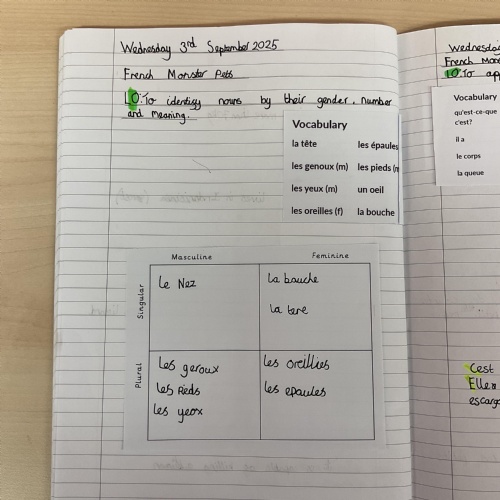 Wednesday 3rd September 2025
French Monster Pets
LO: To identify nouns by their gender, number
and meaning.
Vocabulary
la tête les épaules
les genoux (m) les pieds (m
les yeux (m) un oeil
les oreilles (f) la bouche
Masculine Feminine
Singular
le Nez
la bouche
la tere
Plural
les geroux
les Pieds
les yeox
les oreillies
les epaules
Wednesday
French Mons
LO: To ap
Vocabulary
qu'est-ce-que
c'est?
il a
le corps
la queue
Cest
Elle
escargo